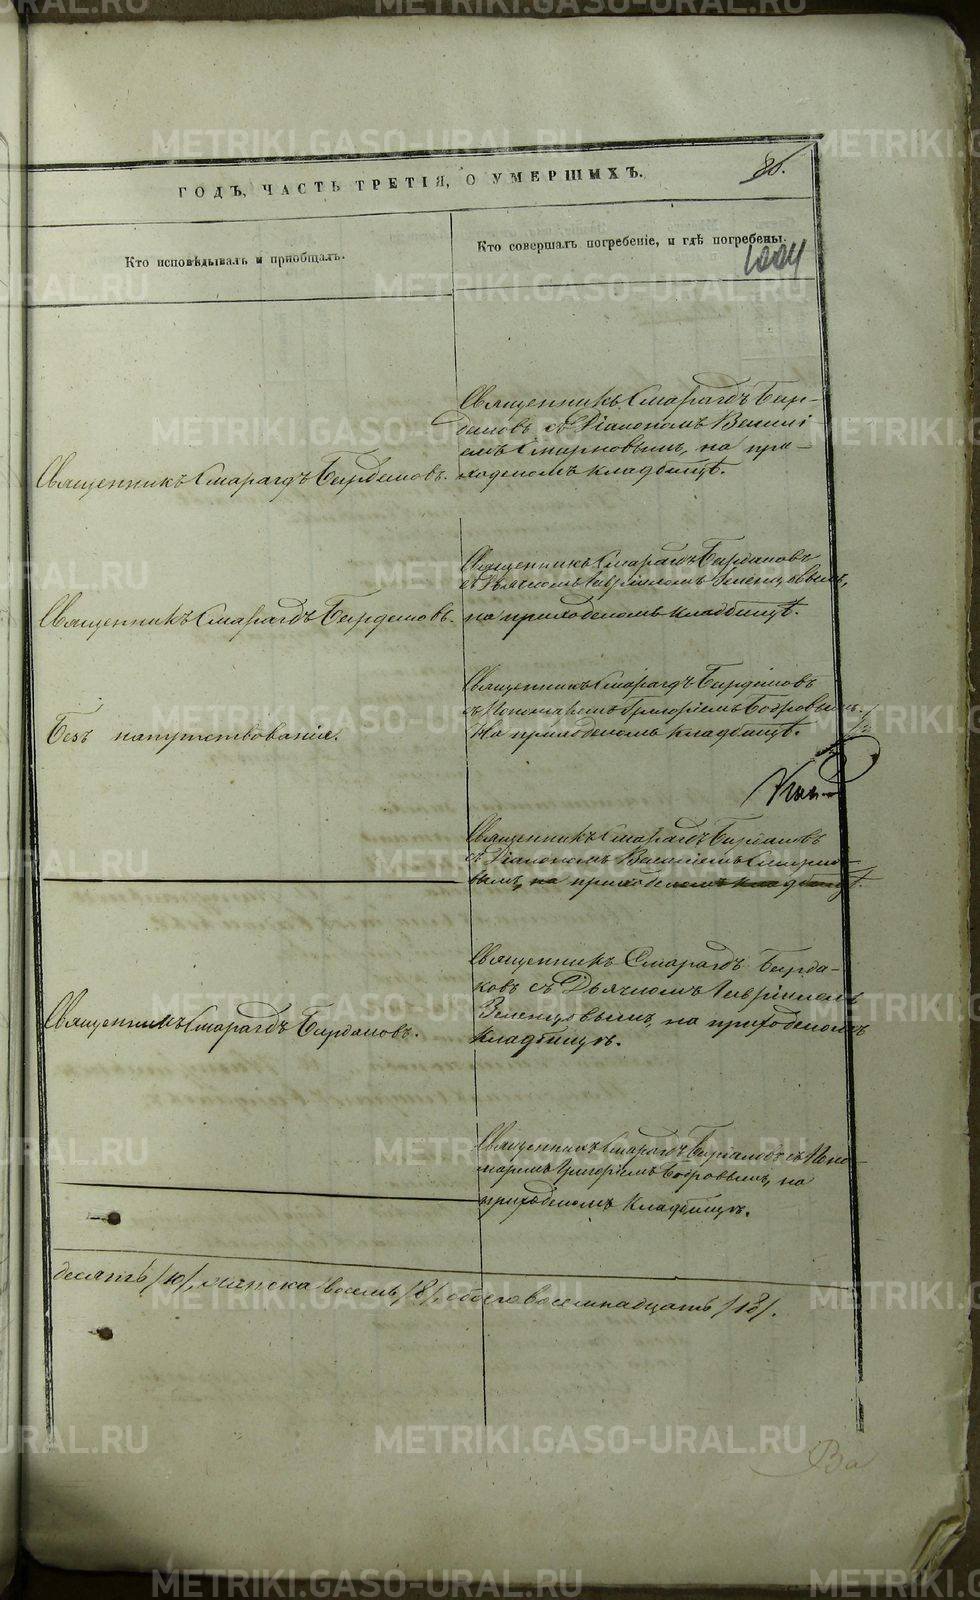 METRIKI.GASO-URAL.RU
ГОДЪ, ЧАСТЬ ТРЕТІЯ, О УМЕРШИХЪ.
86.
Кто исповѣдывалъ и пріобщалъ.
Кто совершалъ погребеніе, и гдѣ погребены.
1004
Священникъ Смарагдъ Бирдюковъ.
Священникъ Смарагдъ Бирдю-
ковъ съ Діакономъ Василі
емъ Смирновымъ, на при-
ходскомъ кладбищѣ.
Священникъ Смарагдъ Бирдюковъ.
Священникъ Смарагдъ Бирдюковъ
съ Дьячкомъ Гавріиломъ Зеленцовымъ,
на приходскомъ кладбищѣ.
Безъ напутствованія.
Священникъ Смарагдъ Бирдюковъ
съ Пономаремъ Григоріемъ Бобровымъ.
На приходскомъ кладбищѣ.
Священникъ Смарагдъ Бирдюковъ
съ Діакономъ Василіемъ Смирно-
вымъ, на приходскомъ кладбищѣ.
Священникъ Смарагдъ Бирдюковъ.
Священникъ Смарагдъ Бирдю-
ковъ съ Дьячкомъ Гавріиломъ
Зеленцовымъ, на приходскомъ
кладбищѣ.
Священникъ Смарагдъ Бирдюковъ съ Поно-
маремъ Григоріемъ Бобровымъ, на
приходскомъ кладбищѣ.
десять /10/, женска восемь /8/, обоего восемнадцать /18/.
Ва